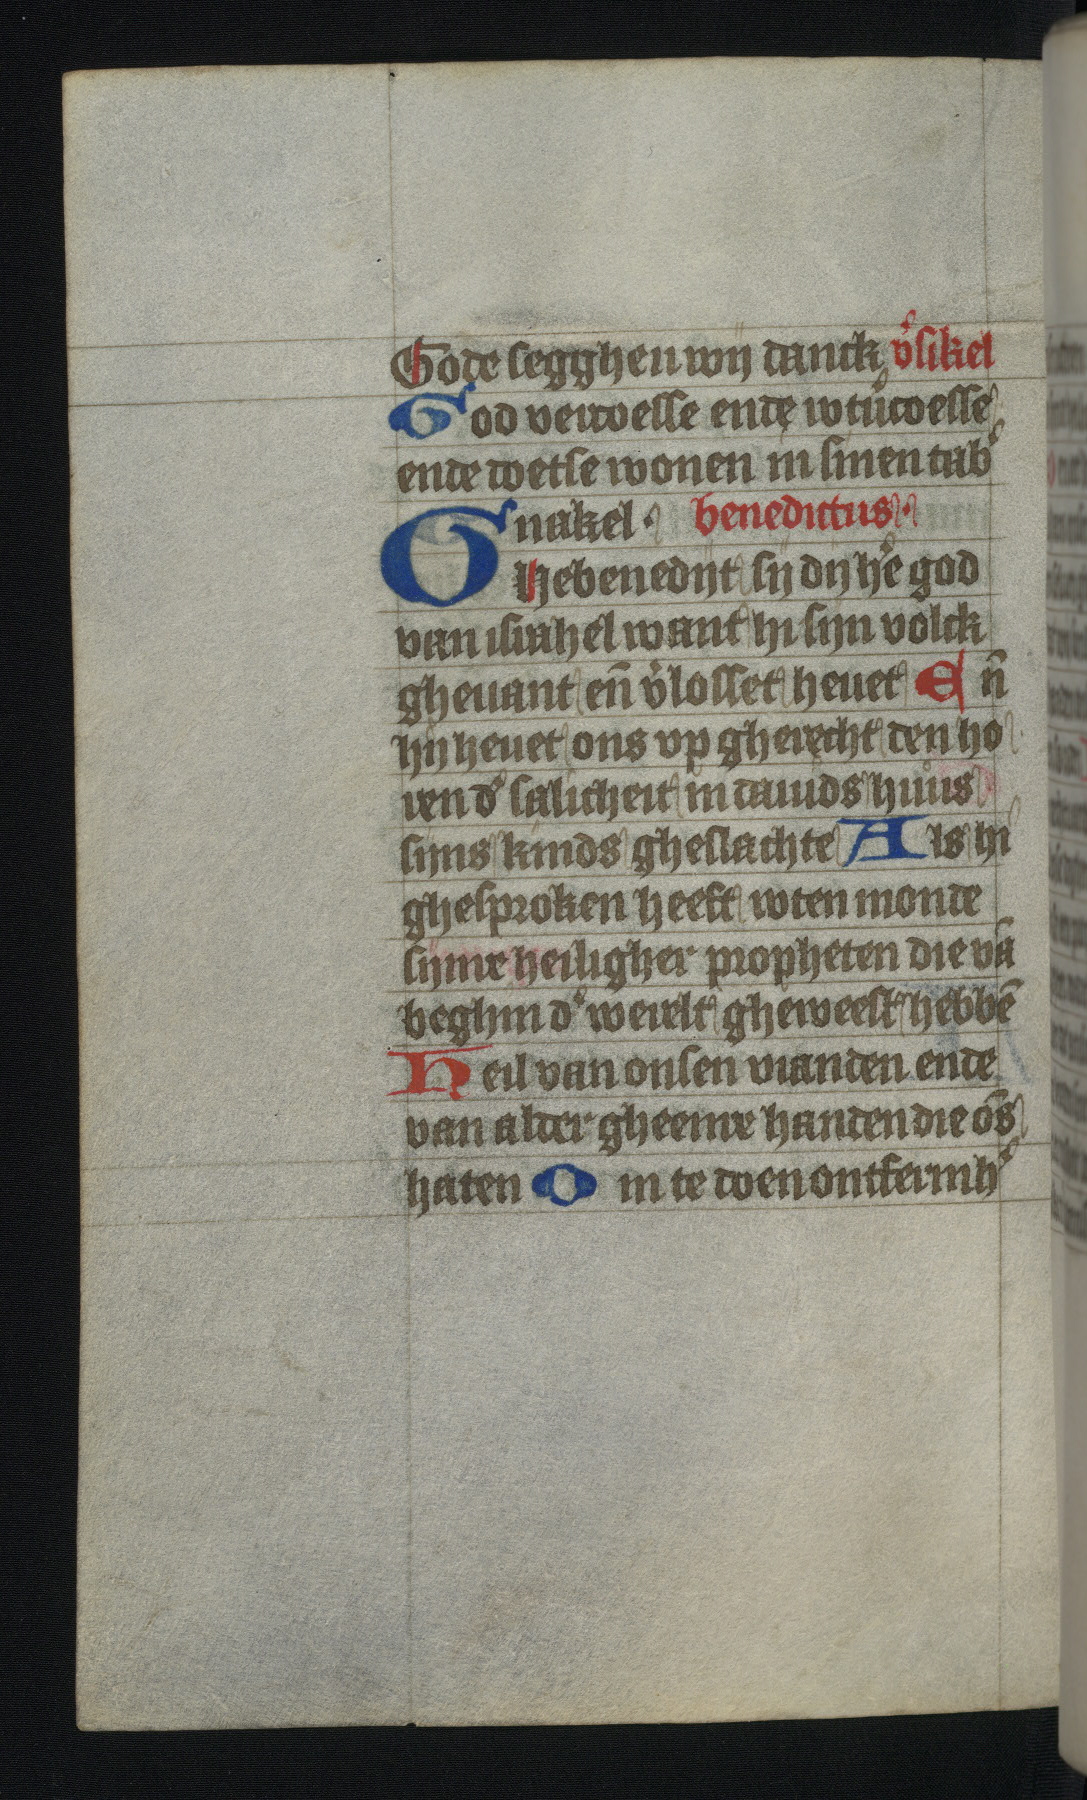 Gode segghen wij danck v̉sikel
God vercoesse ende wtv̉coesse
ende doetse wonen in sinen tab̉
nakel · benedictus ·
Ghebenedijt sij dij hẻ god
van israhel want hi sijn volck
ghevant en̄ v̉losset hevet En̄
hij hevet ons vp gherecht den ho
ren d̉ salicheit in davids huus
sijns kinds gheslachte Als hi
ghesproken heeft wten monde
sijnre heiligher propheten die vā
beghin d̉ werelt gheweest hebbē
Heil van onsen vianden ende
van alder gheenre handen die ōs
haten Om te doen ontfermh̉